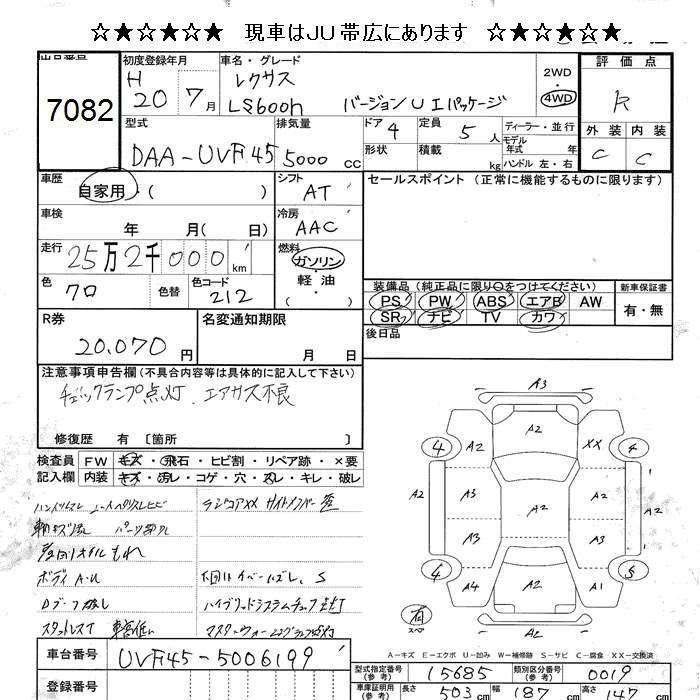 ☆★☆★☆★　現車はJU帯広にあります　☆★☆★☆★
7082
初度登録年月
H 20 7月
車名・グレード
レクサス
LS600h バージョンU Iパッケージ
2WD
・
4WD
評価点
R
外装 内装
C C
型式
DAA-UVF45
排気量
5000 cc
ドア 4
定員 5 人
形状
積載 kg
ディーラー・並行
モデル年式 年式
ハンドル 左・右
車歴
自家用・( )
シフト
AT
セールスポイント (正常に機能するものに限ります)
車検
年 月( 日)
冷房
AAC
走行
25万2千000km
燃料
ガソリン
・
軽油
( )
色
クロ
色替
色コード
212
装備品(純正品に限り○をつけてください)
PS PW ABS エアB AW
SR ナビ TV カワ
新車保証書
有・無
後日品
R券
20.070円
名変通知期限
月 日
注意事項申告欄(不具合内容等は具体的に記入して下さい)
チェックランプ点灯 エアサス不良
修復歴 有〔箇所 〕
検査員 FW キズ・飛石・ヒビ割・リペア跡・×要
記入欄 内装 キズ・汚レ・コゲ・穴・スレ・キレ・破レ
ハンドルスレ
ラジコアXX サイドメンバー
ボディ A・U
下回り
ハイブリッドシステムチェック点灯
スタットレスT 車高低い
マスターウォーニングランプ点灯
A3
A2
A2
XX
4
4
A2
A3
A2
A3
A2
A3
A3
4
S
A4
A2
A1
有
スペア
A2
A－キズ E－エクボ U－凹み W－補修跡 S－サビ C－腐食 XX－交換済
車台番号
UVF45-5006199
登録番号
型式指定番号(参考) 15685
類別区分番号(参考) 0019
車庫証明用(参考) 長さ 503cm 幅 187cm 高さ